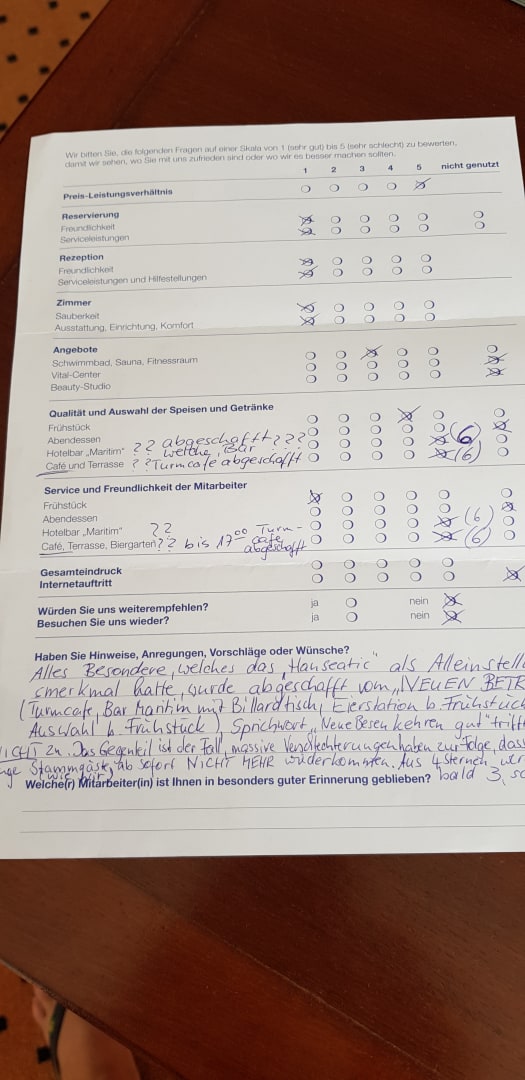 Wir bitten Sie, die folgenden Fragen auf einer Skala von 1 (sehr gut) bis 5 (sehr schlecht) zu bewerten,
damit wir sehen, wo Sie mit uns zufrieden sind oder wo wir es besser machen sollten.
1 2 3 4 5 nicht genutzt
Preis-Leistungsverhältnis
Reservierung
Freundlichkeit
Serviceleistungen
Rezeption
Freundlichkeit
Serviceleistungen und Hilfestellungen
Zimmer
Sauberkeit
Ausstattung, Einrichtung, Komfort
Angebote
Schwimmbad, Sauna, Fitnessraum
Vital-Center
Beauty-Studio
Qualität und Auswahl der Speisen und Getränke
Frühstück
Abendessen ?? abgeschafft ???
Hotelbar „Maritim" welche Bar (6)
Café und Terrasse ?? Turmcafe abgeschafft (6)
Service und Freundlichkeit der Mitarbeiter
Frühstück
Abendessen
Hotelbar „Maritim" ?? (6)
Café, Terrasse, Biergarten ?? bis 17⁰⁰ Turm-cafe abgeschafft (6)
Gesamteindruck
Internetauftritt
Würden Sie uns weiterempfehlen? ja nein
Besuchen Sie uns wieder? ja nein
Haben Sie Hinweise, Anregungen, Vorschläge oder Wünsche?
Alles Besondere, welches das „Hanseatic" als Alleinstell
smerkmal hatte, wurde abgeschafft vom „NEUEN BETR
(Turmcafe, Bar Maritim mit Billardtisch, Eierstation b. Frühstück
Auswahl b. Frühstück) Sprichwort „Neue Besen kehren gut" triff
NICHT zu. Das Gegenteil ist der Fall, massive Verschlechterungen haben zur Folge, dass
nge Stammgäste, ab sofort NICHT MEHR wiederkommen. Aus 4 Sternen wer
(wie wir)
Welche(r) Mitarbeiter(in) ist Ihnen in besonders guter Erinnerung geblieben? bald 3, sc